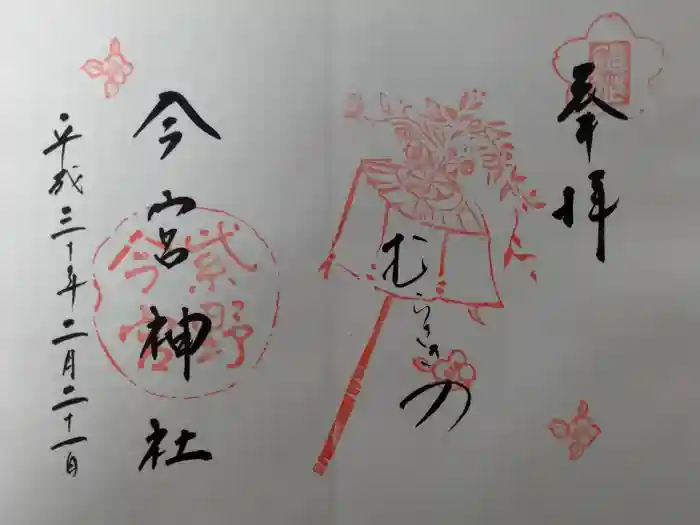 奉拝
むらさきの
今宮神社
紫野
今宮
平成三十年二月二十一日